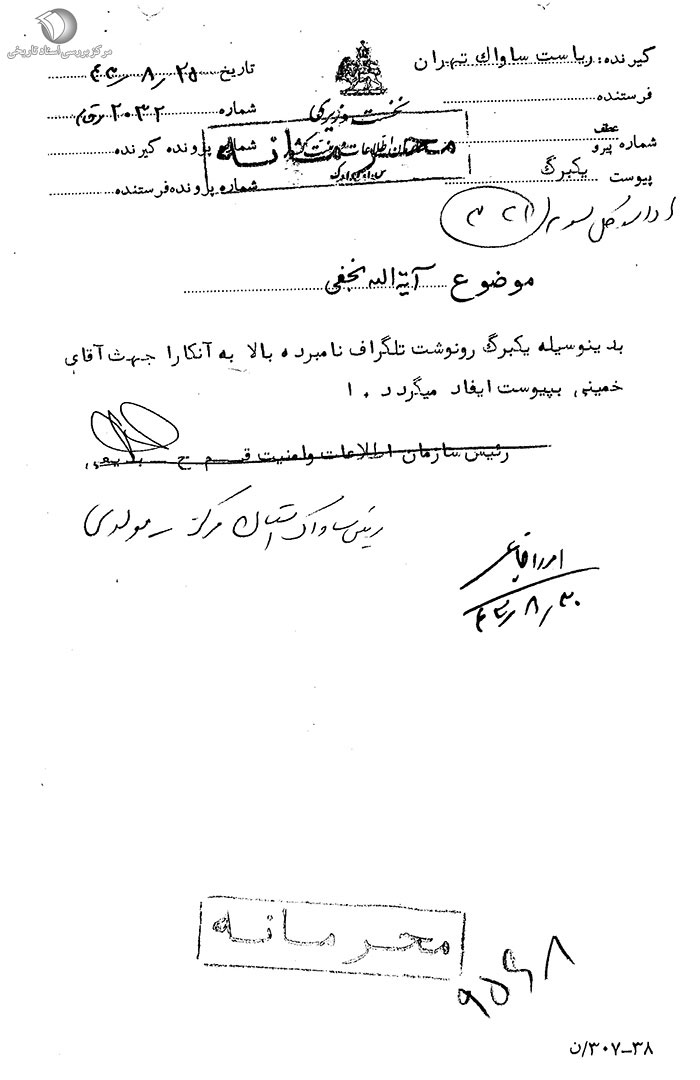 مرکز بررسی اسناد تاریخی
گیرنده: ریاست ساواك تهران
تاریخ ۴۳/۸/۲۵
فرستنده
نخست وزیری
شماره ۲۰۳۲
عطف
شماره پیرو
سازمان اطلاعات و امنیت کشور
محرمانه
شماره پرونده گیرنده
پیوست یکبرگ
س.ا.و.ا.ك
شماره پرونده فرستنده
اداره کل سوم ۳۲۱
موضوع آیة اله نجفی
بدینوسیله یکبرگ رونوشت تلگراف نامبرده بالا به آنکارا جهت آقای
خمینی بپیوست ایفاد میگردد . ا
رئیس سازمان اطلاعات و امنیت قم ج بدیعی
رئیس ساواک استان مرکز مولوی
۴۳/۸/۳۰
محرمانه
۳۰۷-۳۸/ن